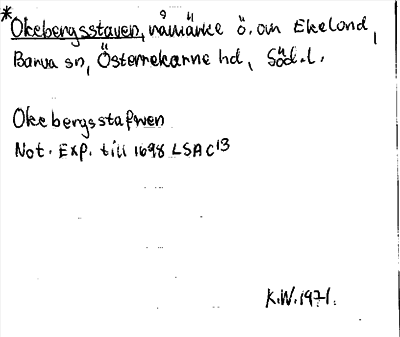 *Okebergsstaven, råmärke ö. om Ekelond,
Barva sn, Österrekarne hd, Söd.l.
Okebergsstafwen
Not. Exp. till 1698 LSA C13
K.W. 1971.